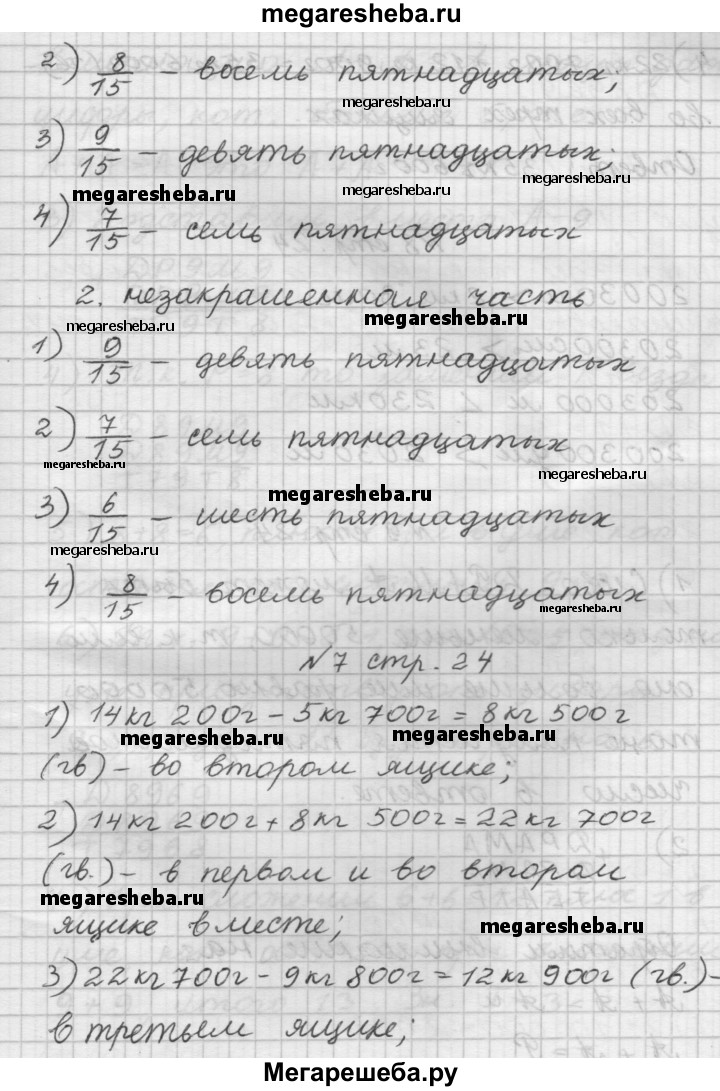 megaresheba.ru
2) 8/15 – восемь пятнадцатых;
megaresheba.ru
megaresheba.ru
3) 9/15 – девять пятнадцатых;
megaresheba.ru
megaresheba.ru
4) 7/15 – семь пятнадцатых
2. незакрашенная часть
megaresheba.ru
megaresheba.ru
1) 9/15 – девять пятнадцатых
2) 7/15 – семь пятнадцатых
megaresheba.ru
megaresheba.ru
megaresheba.ru
3) 6/15 – шесть пятнадцатых
megaresheba.ru
4) 8/15 – восемь пятнадцатых
megaresheba.ru
№7 стр. 24
1) 14кг 200г – 5кг 700г = 8кг 500г
megaresheba.ru
megaresheba.ru
(гв) – во втором ящике;
2) 14кг 200г + 8кг 500г = 22кг 700г
(гв.) – в первом и во втором
megaresheba.ru
ящике вместе;
megaresheba.ru
3) 22кг 700г – 9кг 800г = 12кг 900г (гв.) –
в третьем ящике;
Мегарешеба.ру